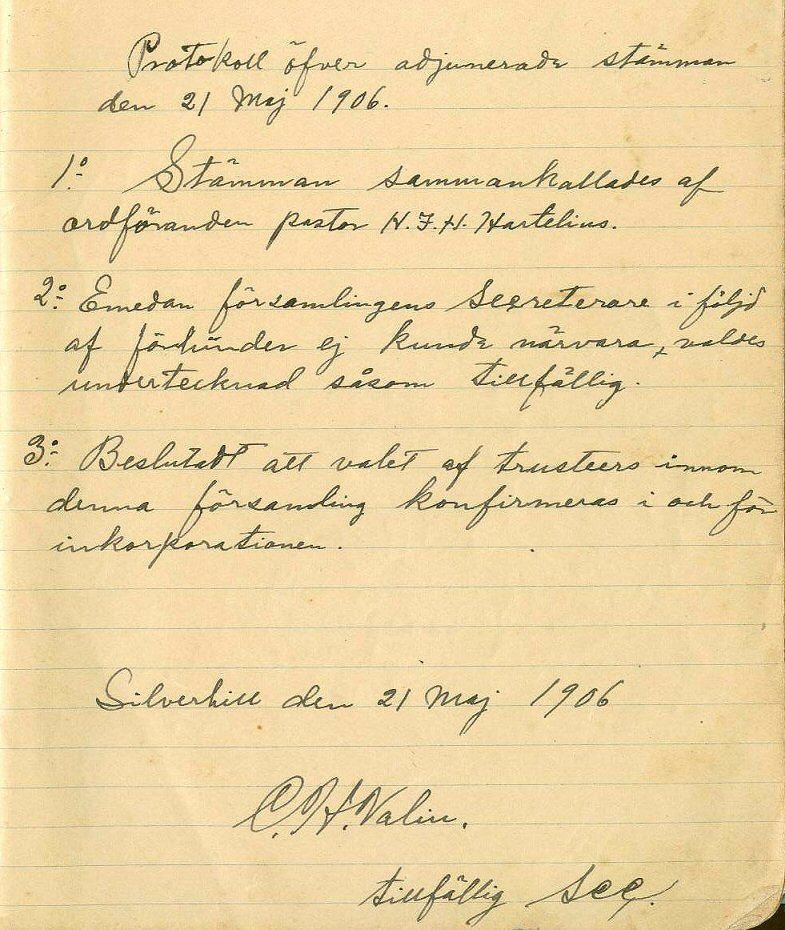 Protokoll öfver adjunerade stämman
den 21 Maj 1906.
1º Stämman sammankallades af
ordföranden pastor N.J.N. Hartelius.
2º Emedan församlingens Secreterare i följd
af förhinder ej kunde närvara, valdes
undertecknad såsom tillfällig.
3º Beslutadt att valet af trusteers innom
denna församling konfirmeras i och för
inkorporationen.
Silverhill den 21 Maj 1906
C. H. Valin.
tillfällig Sec.